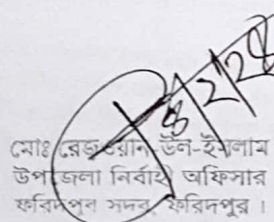 ৪/2/2৪
মোঃ রেজওয়ান-উল-ইসলাম
উপজেলা নির্বাহী অফিসার
ফরিদপুর সদর, ফরিদপুর।